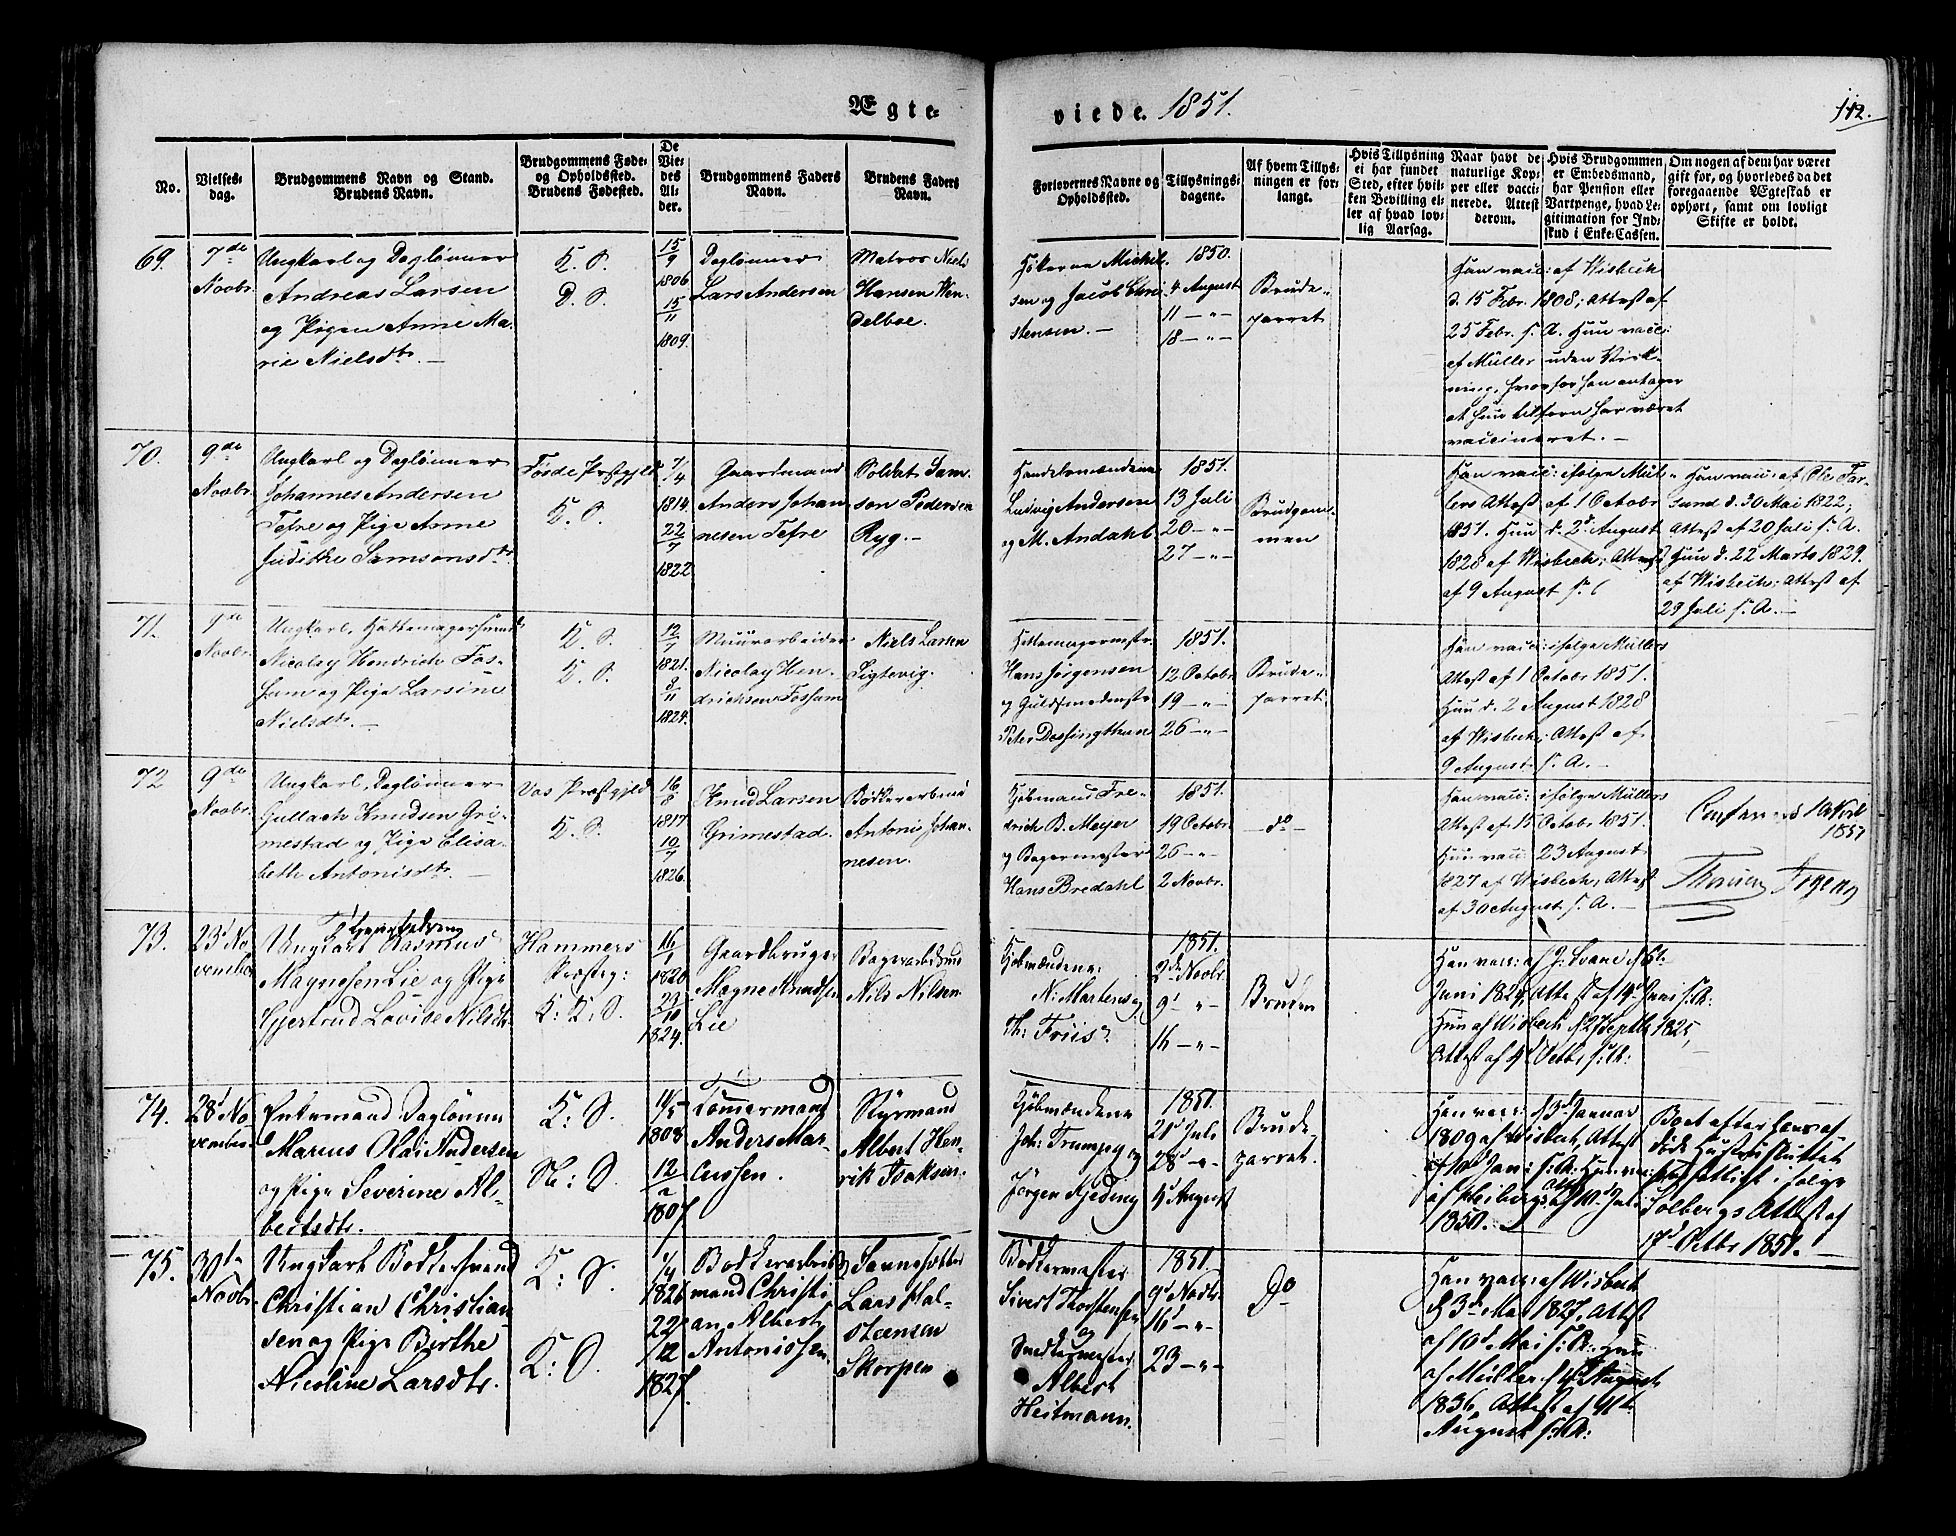 Ægte-
viede. 1851.
112.
No.
Vielses-
dag.
Brudgommens Navn og Stand.
Brudens Navn.
Brudgommens Føde-
og Opholdssted.
Brudens Fødested.
De
Vie-
des
Al-
der.
Brudgommens Faders
Navn.
Brudens Faders
Navn.
Forlovernes Navne og
Opholdssted.
Tillysnings-
dagene.
Af hvem Tillys-
ningen er for-
langt.
Hvis Tillysning
ei har fundet
Sted, efter hvil-
ken Bevilling el-
ler af hvad lov-
lig Aarsag.
Naar havt de
naturlige Kop-
per eller vacci-
nerede. Attest
derom.
Hvis Brudgommen
er Embedsmand,
har Pension eller
Vartpenge, hvad Le-
gitimation for Ind-
skud i Enke-Cassen.
Om nogen af dem har været
gift før, og hvorledes da det
foregaaende Ægteskab er
ophørt, samt om lovligt
Skifte er holdt.
69.
7de
Novbr.
Ungkarl og Dagløнner
Andreas Larsen
og Pigen Anne Ma-
rie Nielsdtr. —
K. S.
D. S.
15/9
1806
15/11
1809.
Dagløнner
Lars Andersen
Matros Niels
Hansen Wen-
delboe.
Høkerne Michel-
sen og Jacob Chri-
stensen. —
1850.
4 August
11 — „ —
18 — „ —
Brude-
parret
Han vacc: af Wisbech
d. 15 Febr. 1808; Attest af
25 Febr. s. A. Hun vacc:
af Müller uden Virk-
ning, hvorfor han antager
at hun tilforn har været
vaccineret. —
70.
9de
Novbr.
Ungkarl og Dagløнner
Johannes Andersen
Tefre og Pige Anne
Judithe Samsonsdtr.
Førde Præstgjeld
K. S.
7/4
1814.
22/7
1822
Gaardmand
Anders Johan-
nesen Tefre
Soldat Sam-
son Pedersen
Ryg. —
Handelsmændene
Ludvig Andersen
og M. Andahl
1851.
13 Juli
20 — „ —
27 — „ —
Brudgom-
men
Han vacc: ifølge Mül-
lers Attest af 1 Octobr
1851. Hun d. 2d August
1828 af Wisbech; Attest
af 9 August s.
Han vacc: af Ole Far-
sund d. 30 Mai 1822;
Attest af 20 Juli s. A.
Hun d. 22 Marts 1829.
af Wisbech; Attest af
29 Juli s. A. —
71.
9de
Novbr.
Ungkarl, Hattemagersvend
Nicolay Hendrich Fos-
sum og Pige Larsine
Nielsdtr. —
K. S.
K. S.
12/7
1821.
8/11
1824.
Muurarbeider
Nicolay Hen-
drichsen Fossum
Niels Larsen
Sigtevig.
Hattemagermestr.
Hans Jørgensen
og Guldsmedmestr.
Peter Dessingthun
1851.
12 Octobr
19 — „ —
26 — „ —
Brude-
parret.
Han vacc: ifølge Müllers
Attest af 1 Octobr 1851.
Hun d. 2 August 1828
af Wisbech; Attest af
9 August s. A. —
72
9de
Novbr.
Ungkarl, Dagløнner
Gullach Knudsen Gri-
mestad og Pige Elisa-
beth Antonisdtr. —
Vos Præstgjeld
K. S.
16/8
1817
10/7
1826.
Knud Larsen
Grimestad.
Bødkerarbmd
Antoni Johan-
nesen.
Kjøbmand Fre-
drich B. Meyer
og Bagermester
Hans Bredahl
1851.
19 Octobr.
26 — „ —
2 Novbr.
— do —
Han vacc: ifølge Müllers
Attest af 15 Octobr 1851.
Hun vacc: 23 August
1827 af Wisbech, Attest
af 30 August s. A. —
1851
73.
23d No-
vember
Ungkarl Rasmus
Magnesen Lie og Pige
Gjertrud Lovise Nilsdtr.
Hammers
Præsteg:
K: K: S.
16/1
1820
29/10
1824.
Gaardbruger
Magne Knudsen
Lie
Bagerarbdsmd
Nils Nilsen
Kjøbmændene:
N: Martens og
Th: Friis.
1851.
2de Novbr.
9d „ —
16 — „ —
Bruden
Han vacc: af J: Svane
Juni 1824, Attest af Juni s. A:
Hun af Wisbech d 27 Septbr 1825,
Attest af 4d Octbr s: A:
74.
28d No-
vember
Enkemand Dagløнner
Marcus Olai Andersen
og Pige Severine Al-
bertsdtr.
K: S.
N: S.
11/5
1808
12/2
1807.
Tømermand
Anders Mar-
cussen.
Styrmand
Albert Hen-
rik Isaksen.
Kjøbmændene
Joh: Trumpy og
Jørgen Nyeding
1851.
21d Juli
28d — „ —
4d August
Brude-
parret.
Han vacc: d 3d Januar
1809 af Wisbech, Attest
af 10d Jan: s. A: Hun vacc:
af Heiberg, Att: af 10d Juli
1850. —
Boet efter hans af-
døde Hustru sluttet
Solbergs Attest af
17d Octbr 1851. —
75.
30te
Novbr.
Ungkarl Bødkersvend
Christian Christian-
sen og Pige Birthe
Nicoline Larsdtr.
K: S.
K: S.
1/4
1826
22/12
1827.
Bødkerarbeids-
mand Christi-
an Albert
Antonissen
Lars Hal-
steensen
Skorpen
Bødkermester
Sivert Thorstensen
og
Snedkermester
Albert
Heitmann.
1851.
9d Novbr.
16d — „ —
23 — „ —
Do
Han vacc: af Wisbech
d 3d Mai 1827, Attest
af 10d Mai s: A: Hun
af Müller d 4d August
1836, Attest af 11te
August s: A: